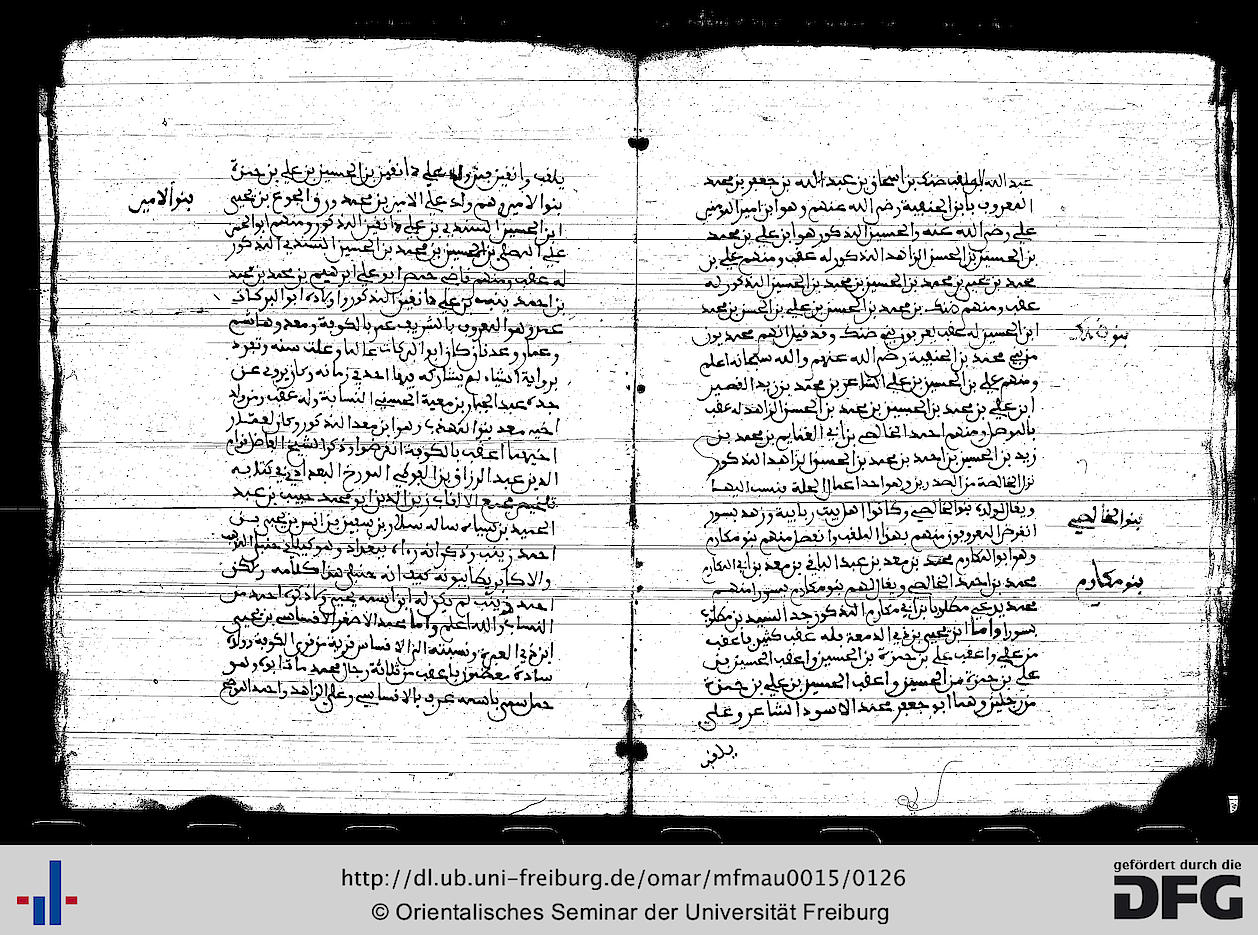 عبد الله الملقب ضنك بن اسحاق بن عبد الله بن جعفر بن محمد
المعروف بابن الحنفية رضي الله عنهم وهو ابن امير المومنين
علي رضي الله عنه والحسين المذكور هو ابن علي بن محمد
بن الحسين بن الحسن الزاهد المذكور له عقب ومنهم علي بن
محمد بن يحيى بن محمد بن الحسين بن محمد بن الحسين المذكور له
عقب ومنهم ضنك بن محمد بن محمد بن الحسن بن علي بن الحسن بن محمد
ابن الحسين له عقب يعرفون ببني ضنك وقد قيل انهم محمديون
من بني محمد بن الحنفية رضي الله عنهم والله سبحانه اعلم
ومنهم علي بن الحسين بن علي الشاعر بن محمد بن زيد القصير
ابن علي بن محمد بن الحسين بن محمد بن الحسن الزاهد له عقب
بالموصل ومنهم احمد الخالصي بن ابي الغنايم بن محمد بن
زيد بن الحسين بن احمد بن محمد بن الحسن الزاهد المذكور
نزل الخالصة من الصدرين وهو احد اعمال الحلة فنسب اليها
ويقال لولده بنو الخالصي وكانوا اهل بيت رياسة وزهد بسورا
انقرض المعروفون منهم بهذا الملقب وانفصل منهم بنو مكارم
وهو ابو المكارم محمد بن معد بن عبد الباقي بن معد بن ابي المكارم
محمد بن احمد الخالصي ويقال لهم بنو مكارم بسورا منهم
محمد يدعى مطلوبا بن ابي مكارم المذكور جد السيد بن مكارم
بسورا واما ابن يحيى بن ذي الدمعة فله عقب كثير باعقب
من علي واعقب علي بن حمزة بن الحسين واعقب الحسين بن
علي بن حمزة من الحسين واعقب الحسين بن علي بن حمزة
من رجلين وهما ابو جعفر محمد الاسود الشاعر وعلي
يلقب
بنو ضنك
بنو الخالصي
بنو مكارم
يلقب دانقين بن علي دانقين بن الحسين بن علي بن حمزة
بنو الامير وهم ولد علي الامير بن محمد بن يحيى
ابن الحسين السندي بن علي دانقين المذكور ومنهم ابو الحسن
علي بن الحسين بن محمد بن الحسين السندي المذكور
له عقب ومنهم قاضي حمص ابو علي ابراهيم بن محمد بن محمد
بن احمد بن علي دانقين المذكور واولاده ابو البركات
عمر وهو المعروف بالشريف عمر بالكوفة ومعد وهاشم
وعمار وعدنان كان ابو البركات عالما وعلت سنه وتفرد
برواية اشياء لم يشاركه فيها احد في زمانه وكان يروي عن
جده عبد الجبار بن معية الحسني النسابة وله عقب ومن ولد
اخيه معد بنو وهو ابن معد المذكور وكان
اخيهما اعقب بالكوفة انقرضوا ذكر الشيخ الفاضل قوام
الدين عبد الرزاق بن الفوطي المورخ البغدادي في كتابه
تلخيص مجمع الاداب زين الدين ابو محمد حبيب بن عبد
الحميد بن
احمد زينب ذكر انه راه ببغداد وهو كيلاني حنبلي المذهب
والاكابر يكاتبونه كيف انه حنبلي هذا كلامه ولكن
احمد زينب لم يكن له ابن اسمه يحيى كما ذكره احد من
النساب والله اعلم واما محمد الاصغر الاقساسي بن يحيى
ابن ذي العبرة ونسبته الى الاقساس قرية من قرى الكوفة وولده
سادة معظمون باعقب من ثلاثة رجال محمد مات ابوه وهو
حمل سمي باسمه عرف بالاقساسي وعلي الزاهد واحمد الموضح
بنو الامير
http://dl.ub.uni-freiburg.de/omar/mfmau0015/0126
© Orientalisches Seminar der Universität Freiburg
gefördert durch die
DFG